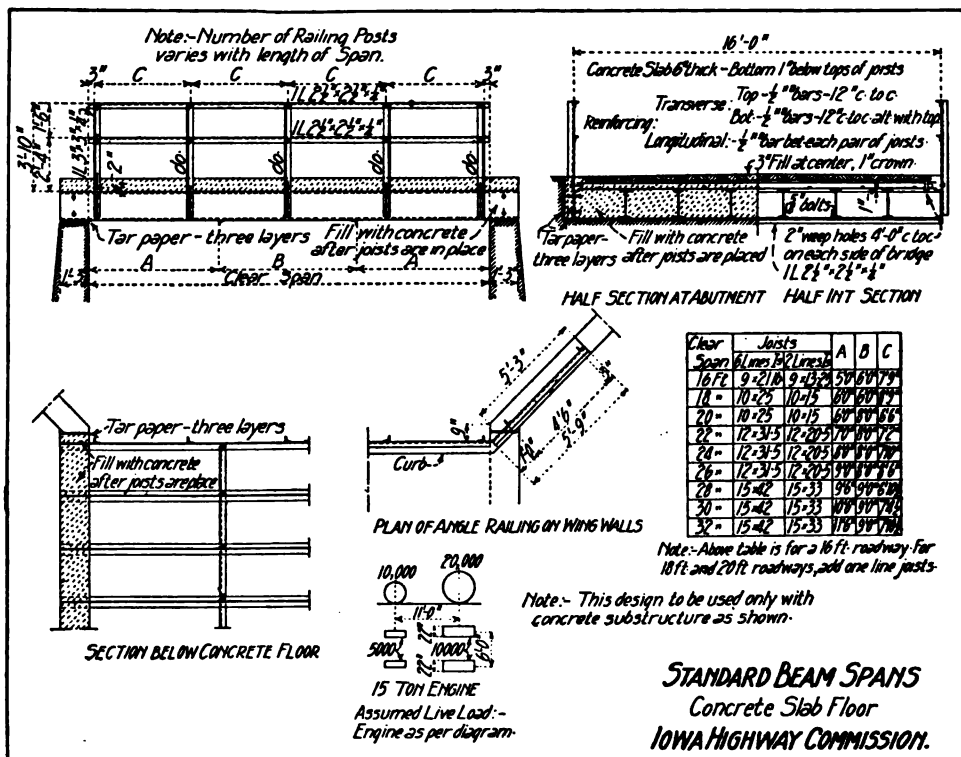 Note:-Number of Railing Posts
varies with length of Span.
3" C C C C 3"
1L 2½"×2½"×¼"
1L 2½"×2½"×¼"
3'-10"
2'-4" 1'-6"
do. do. do.
Tar paper-three layers
Fill with concrete
after joists are in place
A B A
1'-3" Clear Span 1'-3"
16'-0"
Concrete Slab 6" thick-Bottom 1" below tops of joists
Reinforcing:
Transverse: Top-½"" bars-12" c. to c.
Bot-½"" bars-12" c. to c. alt with top
Longitudinal:-½"" bar bet. each pair of joists.
3" Fill at center, 1" crown.
bolts
1"
Tar paper-
three layers
Fill with concrete
after joists are placed
2" weep holes 4'-0" c. to c.
on each side of bridge
1L 2½"×2½"×¼"
HALF SECTION AT ABUTMENT
HALF INT SECTION
Tar paper-three layers
Fill with concrete
after joists are place
SECTION BELOW CONCRETE FLOOR
5'-3"
9"
4'6"
5'-9"
Curb
PLAN OF ANGLE RAILING ON WING WALLS
Clear Span Joists A B C
6 Lines Is 2 Lines Is
16 Ft. 9×21 lb 9×13.25 5'0" 6'0" 7'9"
18 " 10×25 10×15 6'0" 6'0"
20 " 10×25 10×15 6'0" 8'0" 6'6"
22 " 12×31.5 12×20.5 7'0" 8'0" 7'2"
24 " 12×31.5 12×20.5 8'0" 8'0"
26 " 12×31.5 12×20.5 9'0" 8'0" 8'6"
28 " 15×42 15×33 9'6" 9'0"
30 " 15×42 15×33 9'0"
32 " 15×42 15×33 11'6" 9'0"
Note:-Above table is for a 16 ft. roadway. For
18 ft. and 20 ft. roadways, add one line joists.
Note:- This design to be used only with
concrete substructure as shown.
10,000 20,000
11'-0"
5000 22" 10000 6'-0"
22"
15 TON ENGINE
Assumed Live Load:-
Engine as per diagram.
STANDARD BEAM SPANS
Concrete Slab Floor
IOWA HIGHWAY COMMISSION.